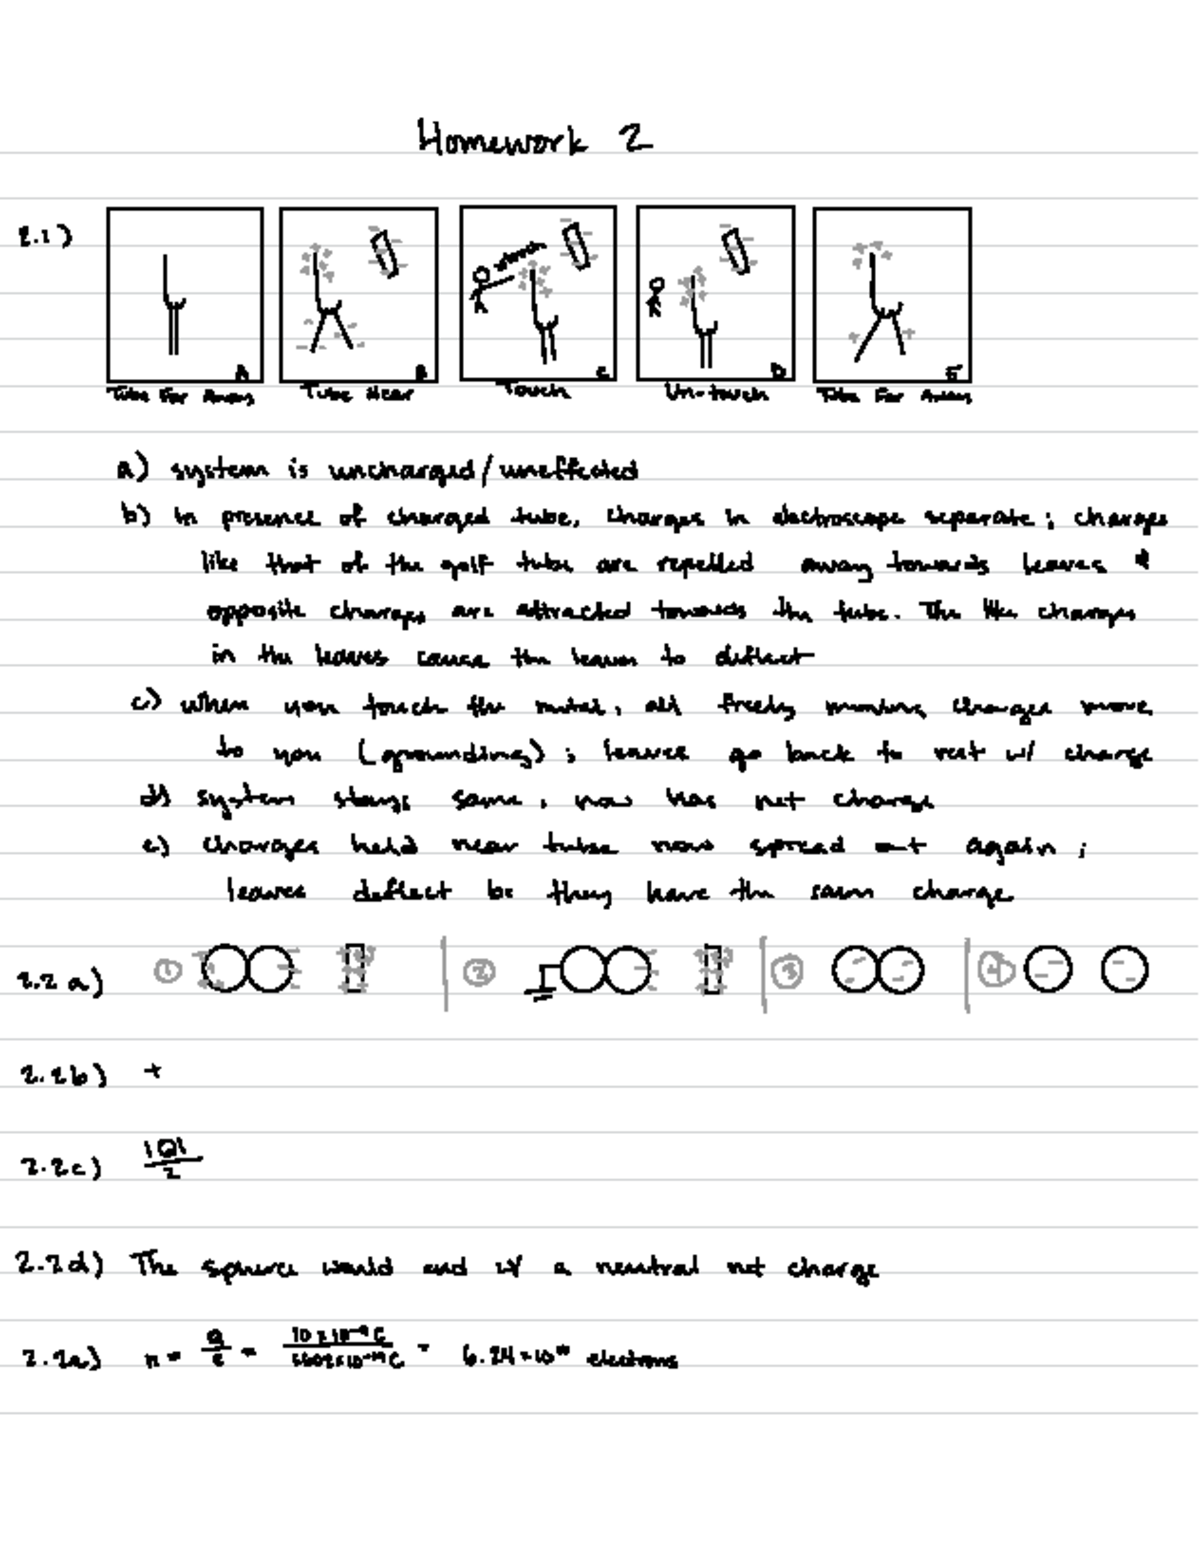 Homework 2
2.1)
A B C D E
Touch
Tube Far Away Tube Near Touch Un-touch Tube Far Away
a) system is uncharged/uneffected
b) in presence of charged tube, charges in electroscope separate; charges
like that of the golf tube are repelled away towards leaves &
opposite charges are attracted towards the tube. The like charges
in the leaves cause the leaves to deflect
c) when you touch the metal, all freely moving charges move
to you (grounding); leaves go back to rest w/ charge
d) system stays same, now has net charge
e) charges held near tube now spread out again;
leaves deflect bc they have the same charge
2.2 a) ① | ② | ③ | ④
2.2b) +
2.2c) |Q|/2
2.2d) The sphere would end w/ a neutral net charge
2.2e) n = Q/e = = 6.24×10 electrons